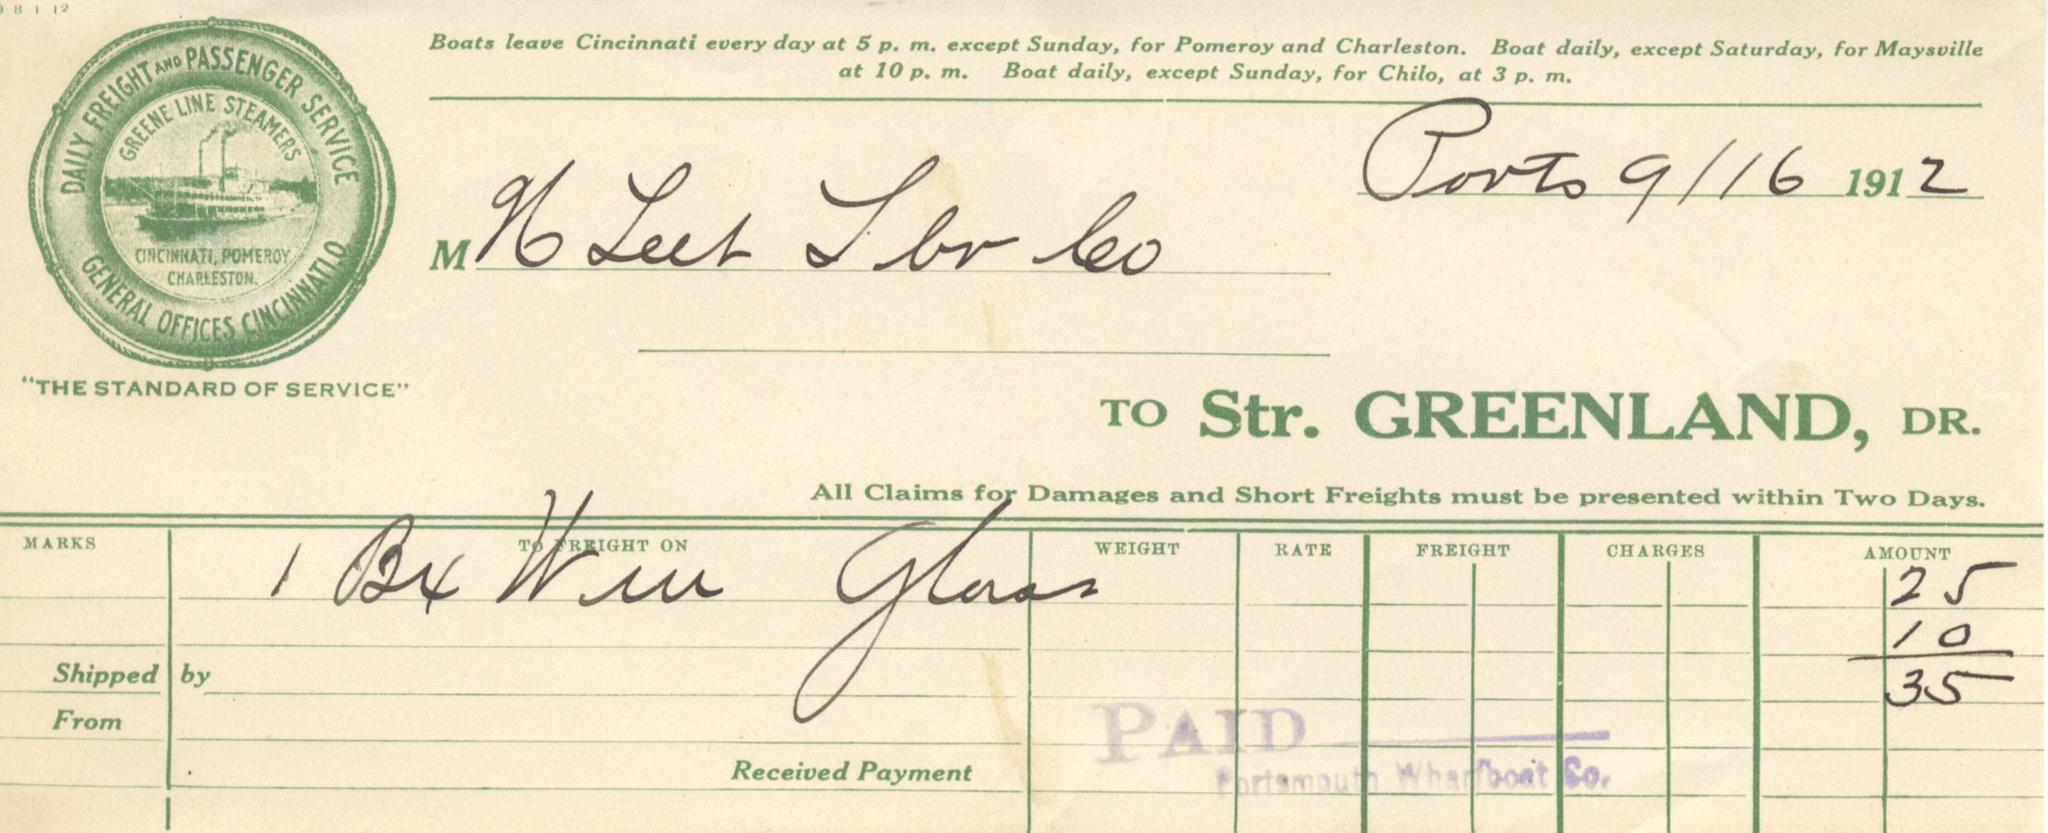 9 8 1 12
DAILY FREIGHT AND PASSENGER SERVICE
GREENE LINE STEAMERS
CINCINNATI, POMEROY
CHARLESTON.
GENERAL OFFICES CINCINNATI, O
"THE STANDARD OF SERVICE"
Boats leave Cincinnati every day at 5 p. m. except Sunday, for Pomeroy and Charleston. Boat daily, except Saturday, for Maysville
at 10 p. m. Boat daily, except Sunday, for Chilo, at 3 p. m.
Ports 9/16 1912
M N Leet Lbr Co
TO Str. GREENLAND, DR.
All Claims for Damages and Short Freights must be presented within Two Days.
MARKS TO FREIGHT ON WEIGHT RATE FREIGHT CHARGES AMOUNT
1 Bx Win Glass 25
10
Shipped by 35
From
PAID
Received Payment Portsmouth Wharfboat Co.